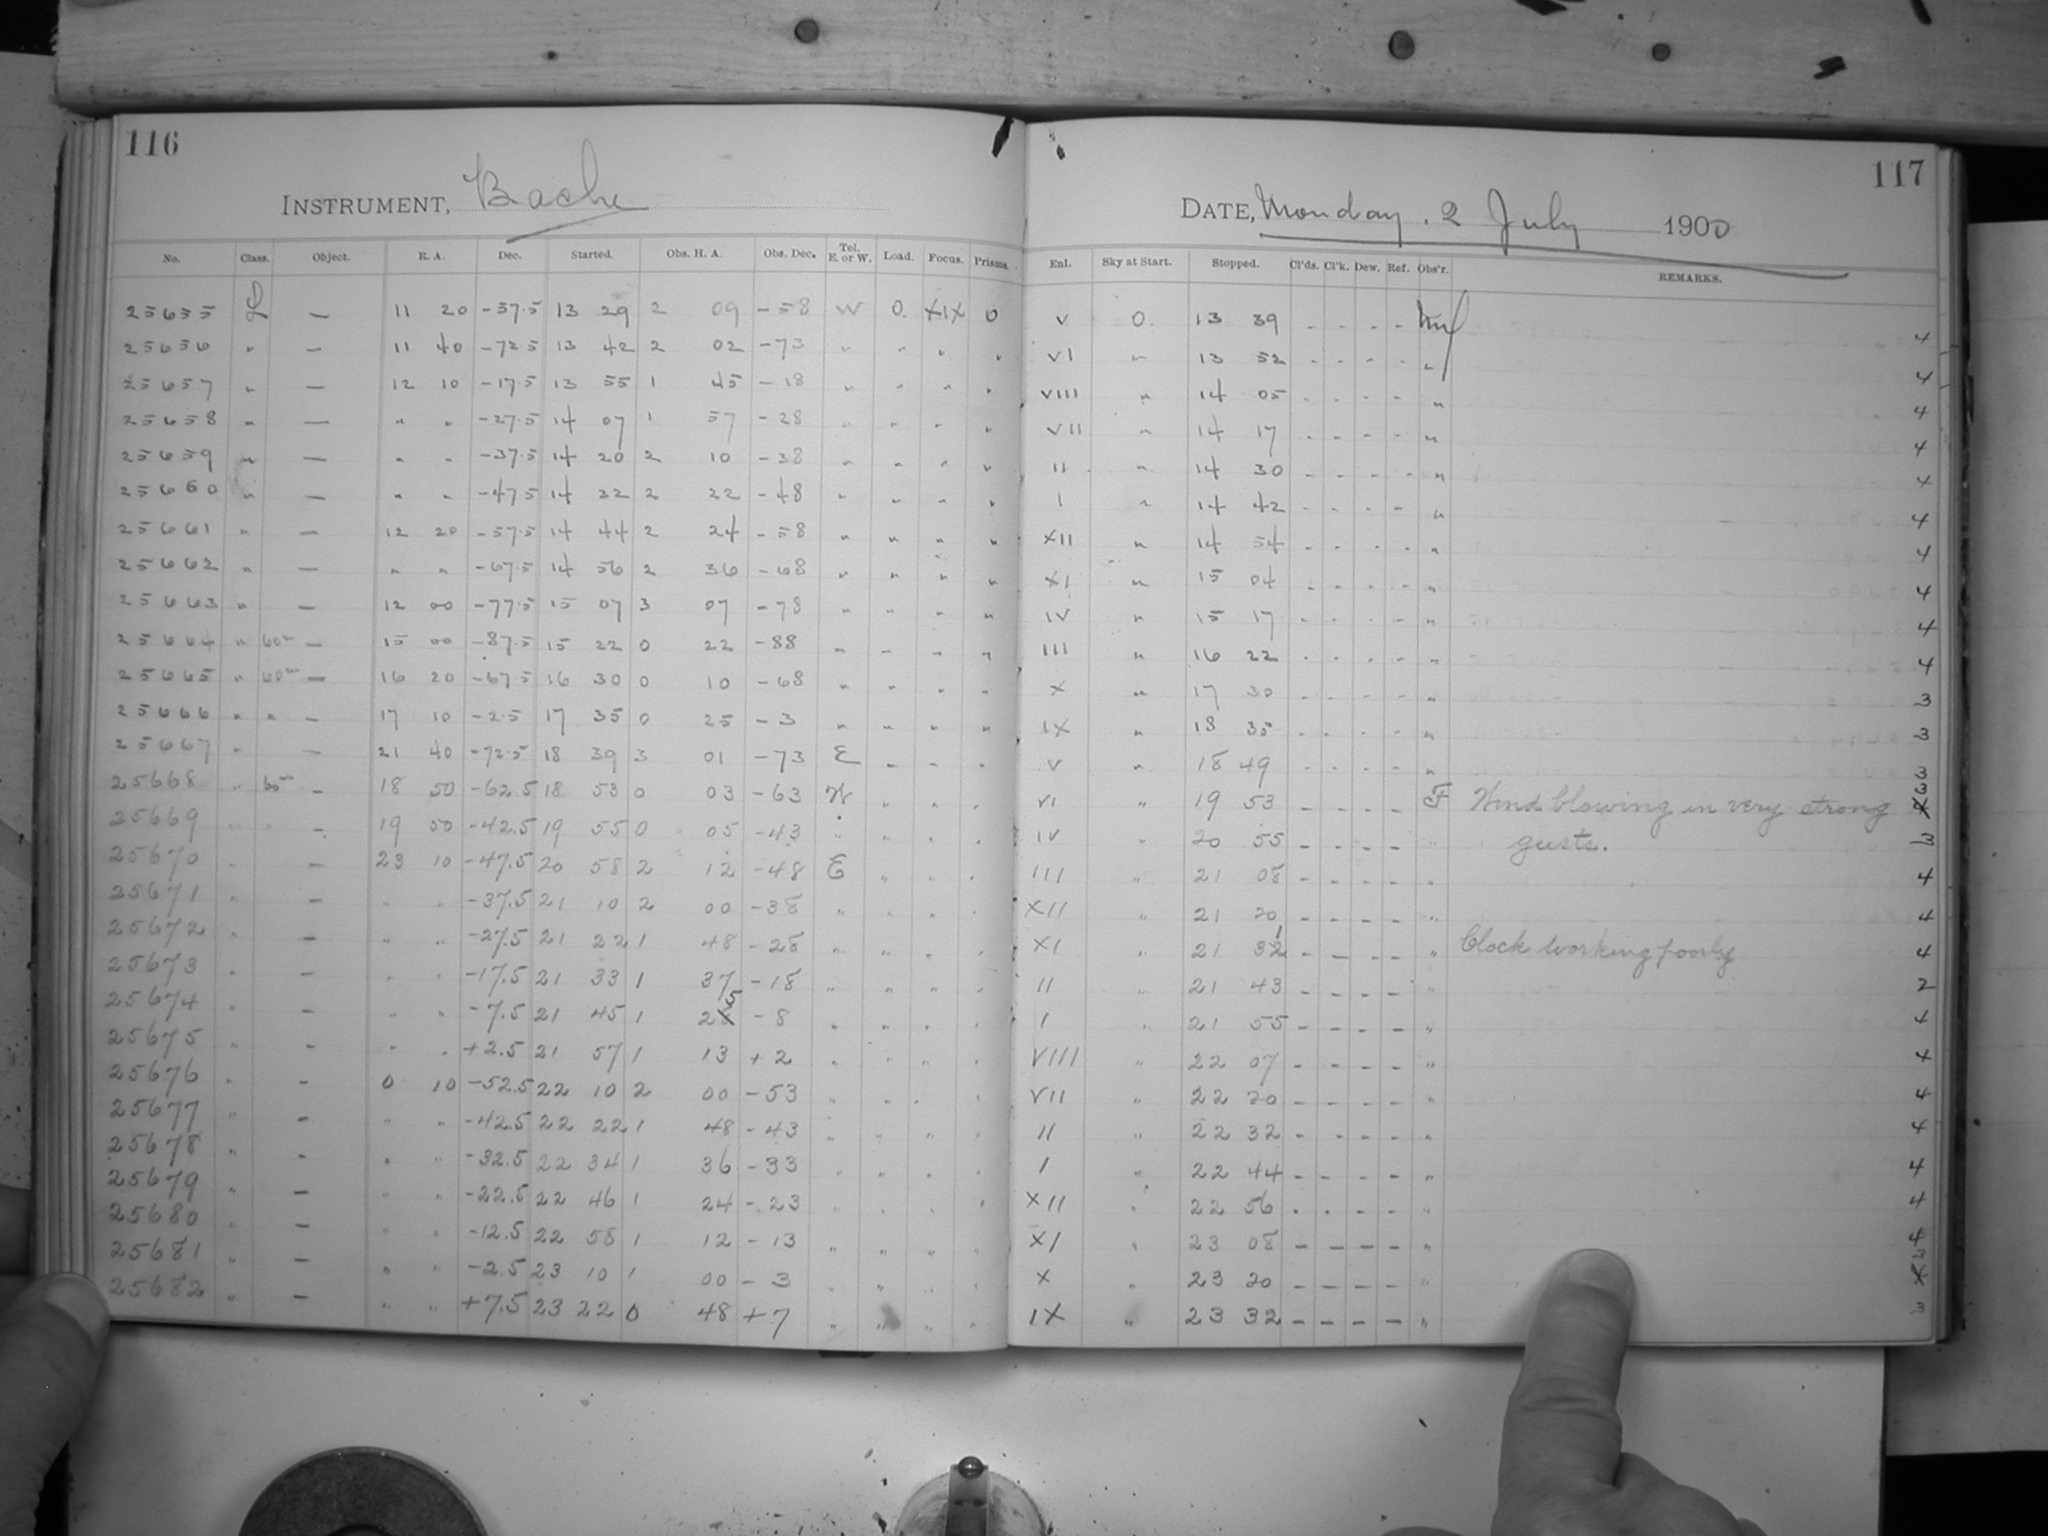 116
INSTRUMENT, Bache
No. Class. Object. R. A. Dec. Started. Obs. H. A. Obs. Dec. Tel. E. or W. Load. Focus. Prisms.
25655 L — 11 20 -57.5 13 29 2 09 -58 W 0. XIX 0
25656 " — 11 40 -72.5 13 42 2 02 -73 " " " "
25657 " — 12 10 -17.5 13 55 1 45 -18 " " " "
25658 " — " " -27.5 14 07 1 57 -28 " " " "
25659 " — " " -37.5 14 20 2 10 -38 " " " "
25660 " — " " -47.5 14 32 2 22 -48 " " " "
25661 " — 12 20 -57.5 14 44 2 24 -58 " " " "
25662 " — " " -67.5 14 56 2 36 -68 " " " "
25663 " — 12 00 -77.5 15 07 3 07 -78 " " " "
25664 " 60m — 15 00 -87.5 15 22 0 22 -88 " " " "
25665 " 60m — 16 20 -67.5 16 30 0 10 -68 " " " "
25666 " " — 17 10 -2.5 17 35 0 25 -3 " " " "
25667 " — 21 40 -72.5 18 39 3 01 -73 E " " "
25668 " 60m — 18 50 -62.5 18 53 0 03 -63 W " " "
25669 " " — 19 50 -42.5 19 55 0 05 -43 " " " "
25670 " — 23 10 -47.5 20 58 2 12 -48 E " " "
25671 " — " " -37.5 21 10 2 00 -38 " " " "
25672 " — " " -27.5 21 22 1 48 -28 " " " "
25673 " — " " -17.5 21 33 1 37 -18 " " " "
25674 " — " " -7.5 21 45 1 25 -8 " " " "
25675 " — " " +2.5 21 57 1 13 +2 " " " "
25676 " — 0 10 -52.5 22 10 2 00 -53 " " " "
25677 " — " " -42.5 22 22 1 48 -43 " " " "
25678 " — " " -32.5 22 34 1 36 -33 " " " "
25679 " — " " -22.5 22 46 1 24 -23 " " " "
25680 " — " " -12.5 22 58 1 12 -13 " " " "
25681 " — " " -2.5 23 10 1 00 -3 " " " "
25682 " — " " +7.5 23 22 0 48 +7 " " " "
117
DATE, Monday. 2 July 1900
Enl. Sky at Start. Stopped. Cl'ds. Cl'k. Dew. Ref. Obs'r. REMARKS.
V 0. 13 39 - - - - 4
VI " 13 52 - - - - " 4
VIII " 14 05 - - - - " 4
VII " 14 17 - - - - " 4
II " 14 30 - - - - " 4
I " 14 42 - - - - " 4
XII " 14 54 - - - - " 4
XI " 15 04 - - - - " 4
IV " 15 17 - - - - " 4
III " 16 22 - - - - " 4
X " 17 30 - - - - " 3
IX " 18 35 - - - - " 3
V " 18 49 - - - - " 3
VI " 19 53 - - - - F Wind blowing in very strong 3
IV " 20 55 - - - - " gusts. 3
III " 21 08 - - - - " 4
XII " 21 20 - - - - " 4
XI " 21 32 - - - - " Clock working poorly 4
II " 21 43 - - - - " 2
I " 21 55 - - - - " 4
VIII " 22 07 - - - - " 4
VII " 22 20 - - - - " 4
II " 22 32 - - - - " 4
I " 22 44 - - - - " 4
XII " 22 56 - - - - " 4
XI " 23 08 - - - - " 4
X " 23 20 - - - - " 3
IX " 23 32 - - - - " 3